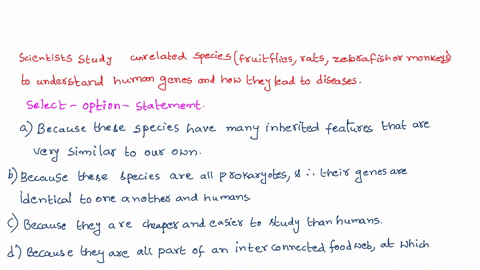 Scientists study unrelated species (fruitflies, rats, zebrafish or monkeys)
to understand human genes and how they lead to diseases.
Select - option - statement.
a) Because these species have many inherited features that are
very similar to our own.
b) Because these species are all prokaryotes, & ∴ their genes are
identical to one another and humans.
c) Because they are cheaper and easier to study than humans.
d) Because they are all part of an interconnected food web, at which